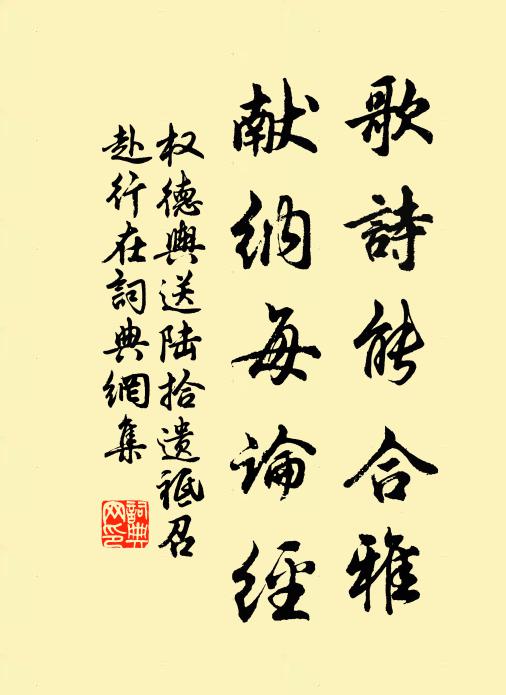 歌詩能合雅
献納每論經
权德輿送陆拾遗祗召
赴行在詞典網集
詞典网印